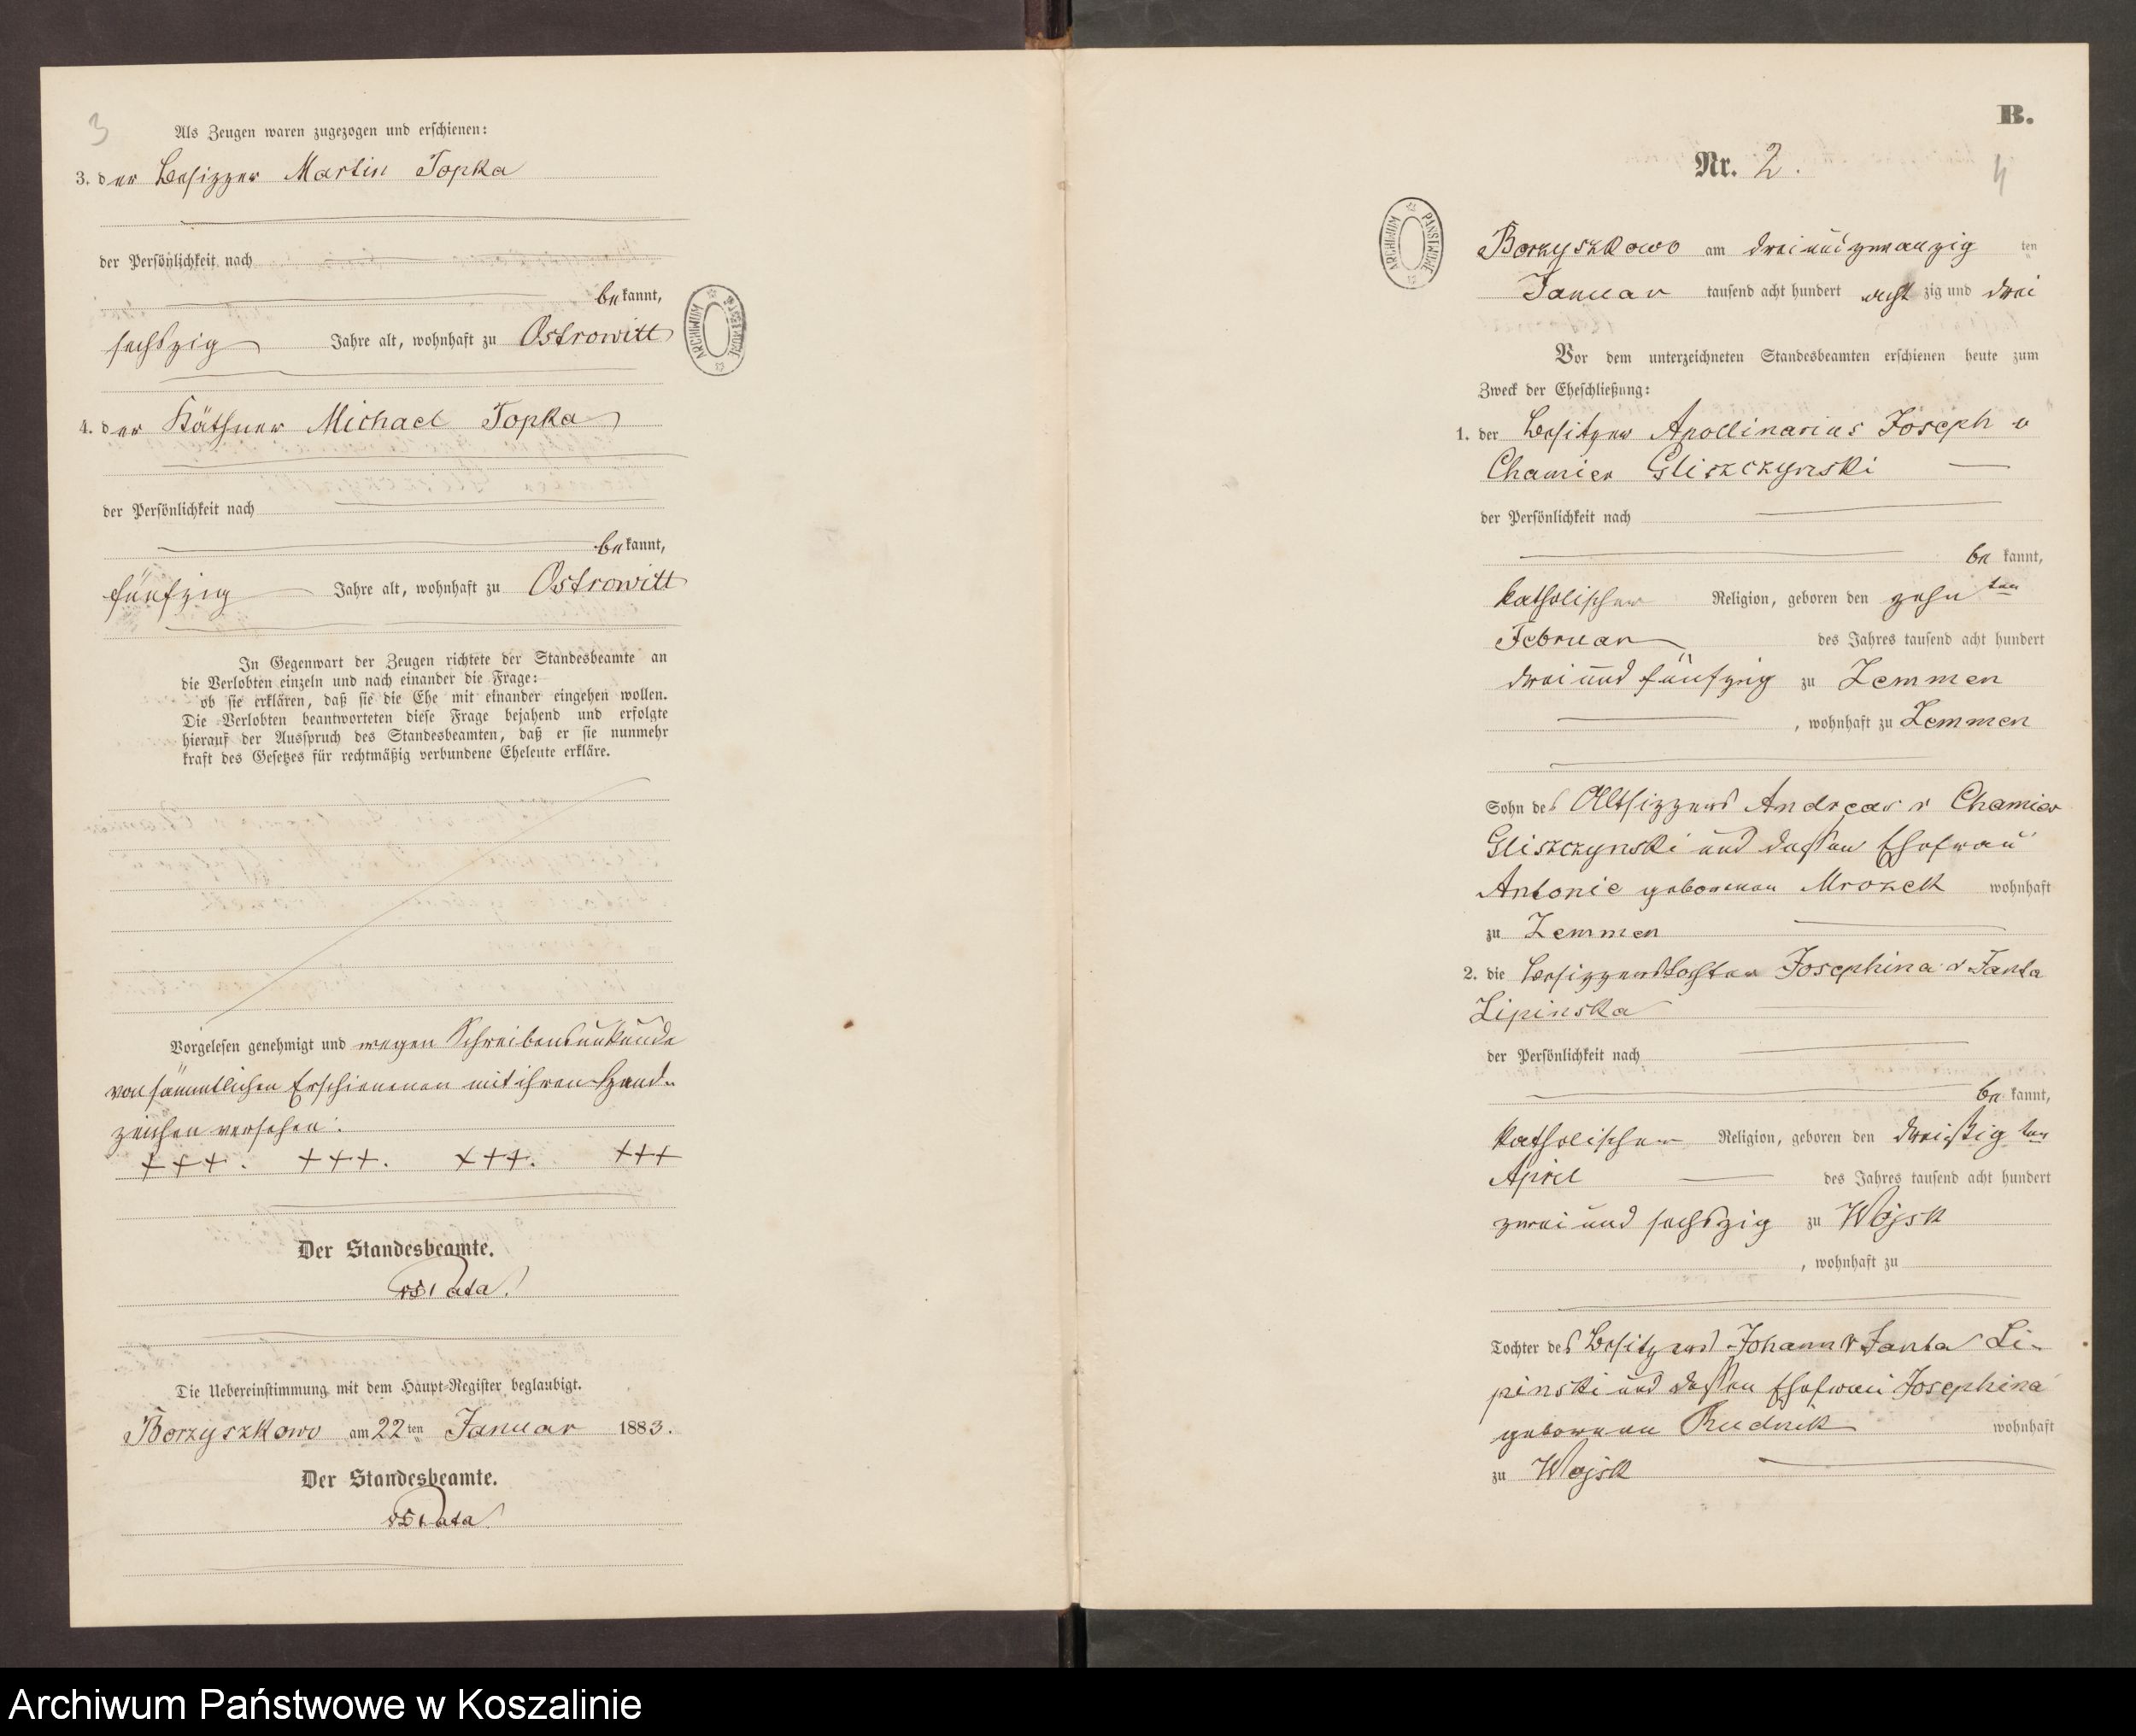 3
Als Zeugen waren zugezogen und erschienen:
3. der Besizzer Martin Topka
der Persönlichkeit nach
bekannt,
sechszig Jahre alt, wohnhaft zu Ostrowitt
4. der Käthner Michael Topka
der Persönlichkeit nach
bekannt,
fünfzig Jahre alt, wohnhaft zu Ostrowitt
In Gegenwart der Zeugen richtete der Standesbeamte an
die Verlobten einzeln und nach einander die Frage:
ob sie erklären, daß sie die Ehe mit einander eingehen wollen.
Die Verlobten beantworteten diese Frage bejahend und erfolgte
hierauf der Ausspruch des Standesbeamten, daß er sie nunmehr
kraft des Gesetzes für rechtmäßig verbundene Eheleute erkläre.
Vorgelesen genehmigt und wegen Schreibensunkunde
von sämmtlichen Erschienenen mit ihren Hand-
zeichen versehen.
+++. +++. +++. +++
Der Standesbeamte.
Die Uebereinstimmung mit dem Haupt-Register beglaubigt.
Borzyszkowo am 22ten Januar 1883.
Der Standesbeamte.
ARCHIWUM PAŃSTWOWE
B.
4
Nr. 2.
ARCHIWUM PAŃSTWOWE
Borzyszkowo am dreiundzwanzig ten
Januar tausend acht hundert achtzig und drei
Vor dem unterzeichneten Standesbeamten erschienen heute zum
Zweck der Eheschließung:
1. der Besitzer Apollinarius Joseph v
Chamier Gliszczynski
der Persönlichkeit nach
bekannt,
katholischer Religion, geboren den zehnten
Februar des Jahres tausend acht hundert
drei und fünfzig zu Zemmen
, wohnhaft zu Zemmen
Sohn des Altsizzers Andreas v Chamier
Gliszczynski und dessen Ehefrau
Antonie geborenen Mrozek wohnhaft
zu Zemmen
2. die Besizzerstochter Josephina v Janta
Lipinska
der Persönlichkeit nach
bekannt,
katholischer Religion, geboren den dreißigten
April des Jahres tausend acht hundert
zwei und sechszig zu Wojsk
, wohnhaft zu
Tochter des Besitzers Johann v Janta Li-
pinski und dessen Ehefrau Josephina
geborenen Rudnik wohnhaft
zu Wojsk
Archiwum Państwowe w Koszalinie